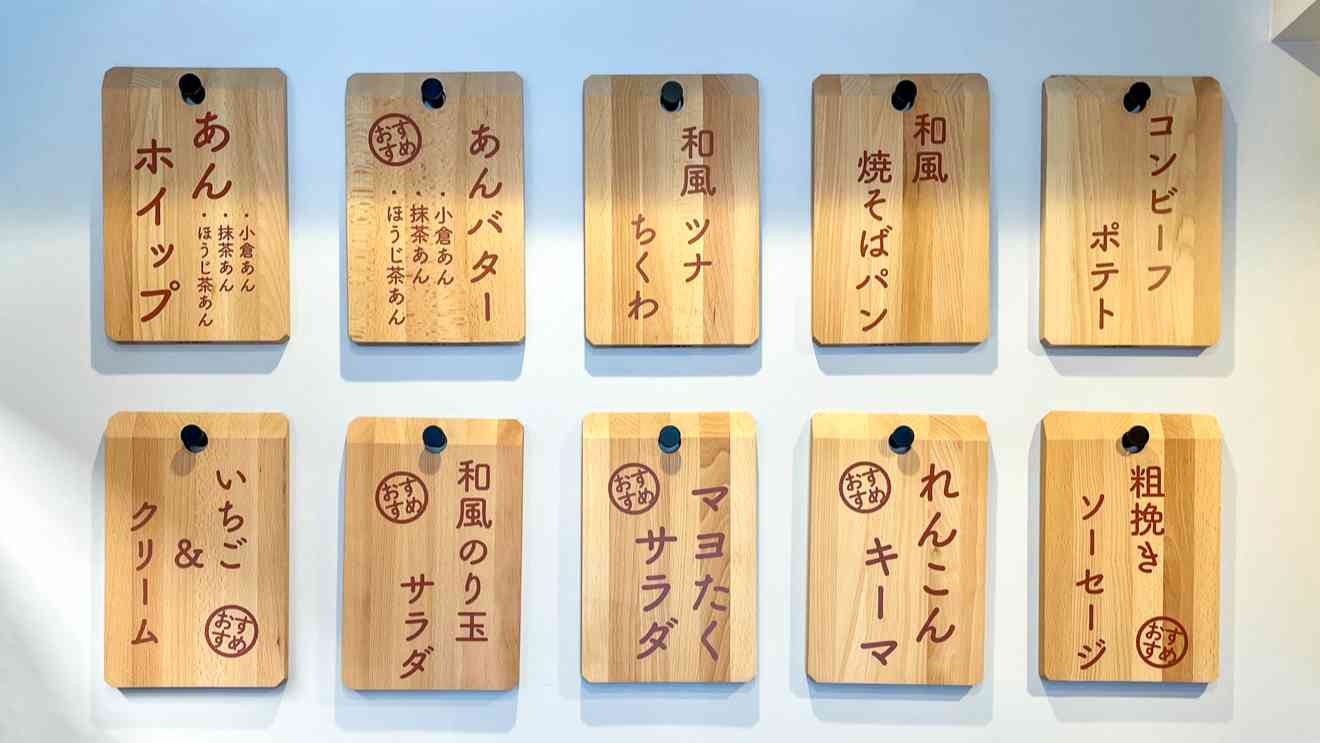 あん
ホイップ
・小倉あん
・抹茶あん
・ほうじ茶あん
おすすめ
あんバター
・小倉あん
・抹茶あん
・ほうじ茶あん
和風ツナ
ちくわ
和風
焼そばパン
コンビーフ
ポテト
いちご
&
クリーム
おすすめ
おすすめ
和風のり玉
サラダ
おすすめ
マヨたく
サラダ
おすすめ
れんこん
キーマ
粗挽き
ソーセージ
おすすめ